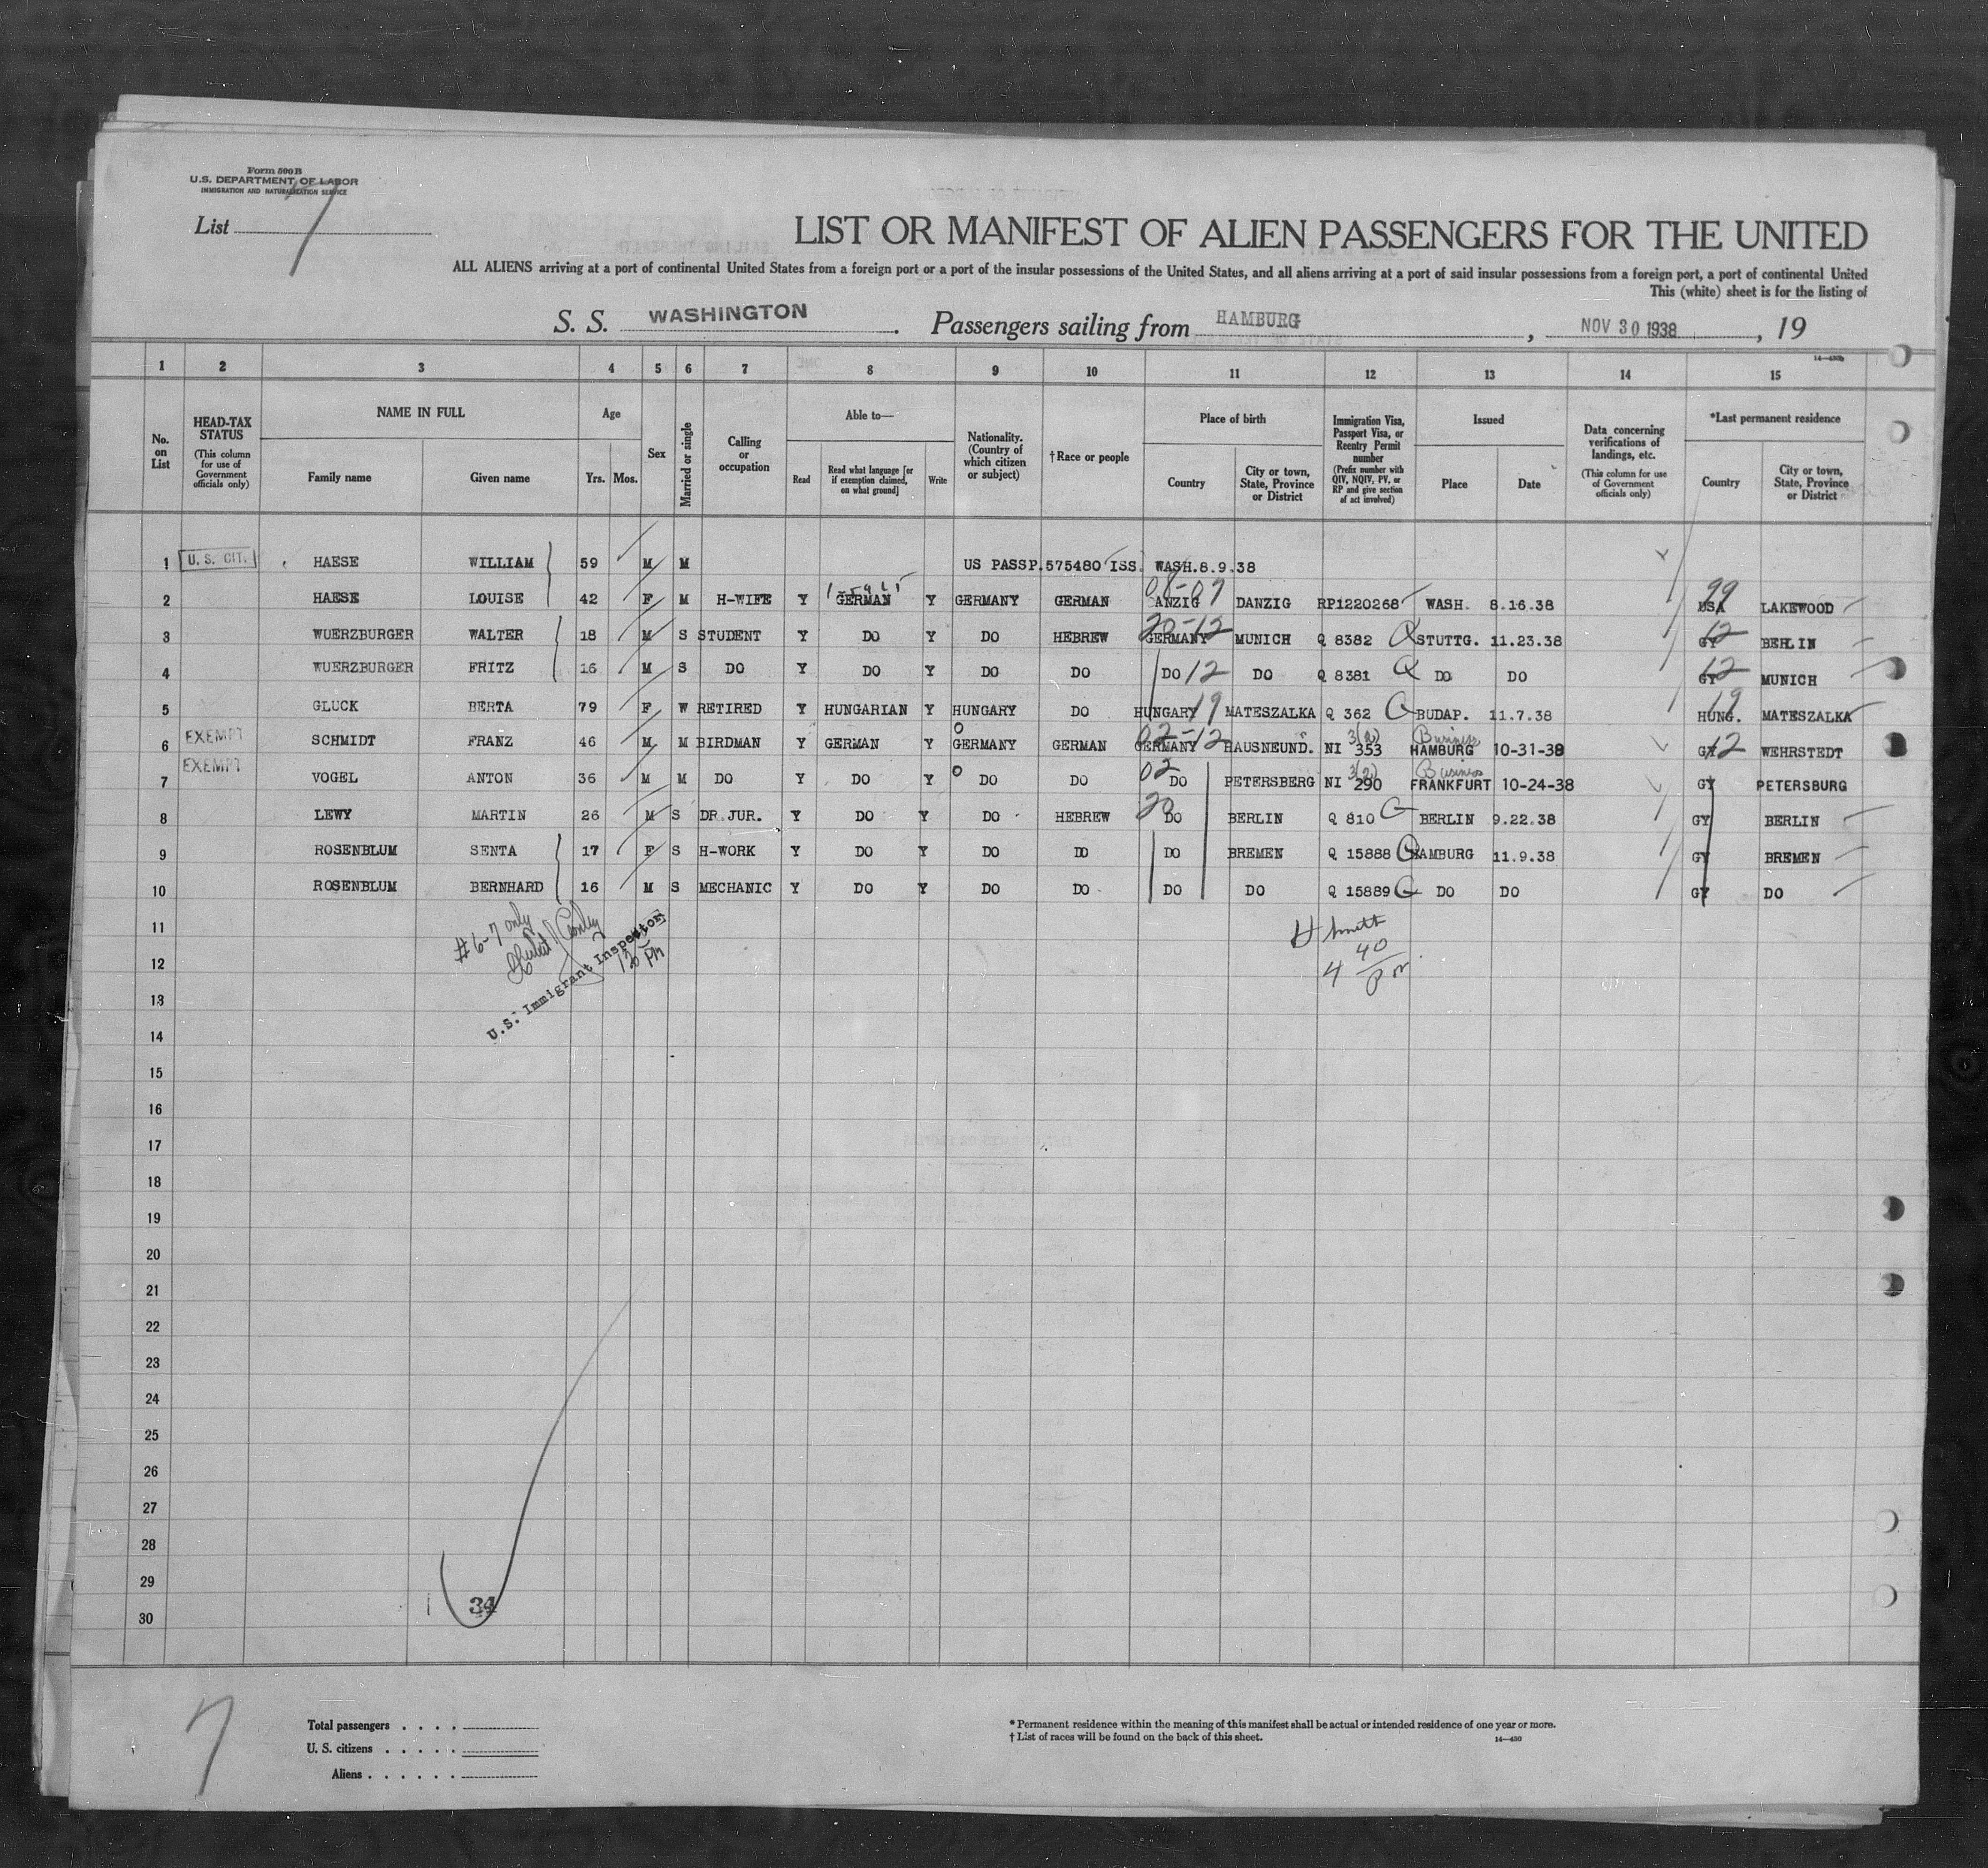 Form 500 B
U.S. DEPARTMENT OF LABOR
IMMIGRATION AND NATURALIZATION SERVICE
List 7
LIST OR MANIFEST OF ALIEN PASSENGERS FOR THE UNITED
ALL ALIENS arriving at a port of continental United States from a foreign port or a port of the insular possessions of the United States, and all aliens arriving at a port of said insular possessions from a foreign port, a port of continental United
This (white) sheet is for the listing of
S. S. WASHINGTON . Passengers sailing from HAMBURG , NOV 30 1938 , 19
14—430b
1 2 3 4 5 6 7 8 9 10 11 12 13 14 15
No. on List
HEAD-TAX STATUS (This column for use of Government officials only)
NAME IN FULL Family name Given name
Age Yrs. Mos.
Sex
Married or single
Calling or occupation
Able to— Read Read what language [or if exemption claimed, on what ground] Write
Nationality. (Country of which citizen or subject)
†Race or people
Place of birth Country City or town, State, Province or District
Immigration Visa, Passport Visa, or Reentry Permit number (Prefix number with QIV, NQIV, PV, or RP and give section of act involved)
Issued Place Date
Data concerning verifications of landings, etc. (This column for use of Government officials only)
*Last permanent residence Country City or town, State, Province or District
1 U. S. CIT. HAESE WILLIAM 59 M M US PASSP.575480 ISS. WASH.8.9.38
2 HAESE LOUISE 42 F M H-WIFE Y GERMAN Y GERMANY GERMAN ANZIG DANZIG RP1220268 WASH. 8.16.38 99 USA LAKEWOOD
3 WUERZBURGER WALTER 18 M S STUDENT Y DO Y DO HEBREW 20-12 GERMANY MUNICH Q 8382 Q STUTTG. 11.23.38 12 GY BERLIN
4 WUERZBURGER FRITZ 16 M S DO Y DO Y DO DO DO 12 DO Q 8381 Q DO DO 12 GY MUNICH
5 GLUCK BERTA 79 F W RETIRED Y HUNGARIAN Y HUNGARY DO HUNGARY 19 MATESZALKA Q 362 BUDAP. 11.7.38 19 HUNG. MATESZALKA
6 EXEMPT SCHMIDT FRANZ 46 M M BIRDMAN Y GERMAN Y GERMANY GERMAN 02-12 GERMANY HAUSNEUND. NI 3(2) 353 Business HAMBURG 10-31-38 GY 12 WEHRSTEDT
7 EXEMPT VOGEL ANTON 36 M M DO Y DO Y DO DO 02 DO PETERSBERG NI 3(2) 290 Business FRANKFURT 10-24-38 GY PETERSBURG
8 LEWY MARTIN 26 M S DR.JUR. Y DO Y DO HEBREW 20 DO BERLIN Q 810 BERLIN 9.22.38 GY BERLIN
9 ROSENBLUM SENTA 17 F S H-WORK Y DO Y DO DO DO BREMEN Q 15888 HAMBURG 11.9.38 GY BREMEN
10 ROSENBLUM BERNHARD 16 M S MECHANIC Y DO Y DO DO DO DO Q 15889 DO DO GY DO
11
#6-7 only
U.S. Immigrant Inspector
H Smith
4 40 pm
12
13
14
15
16
17
18
19
20
21
22
23
24
25
26
27
28
29
30
34
7
Total passengers
U. S. citizens
Aliens
* Permanent residence within the meaning of this manifest shall be actual or intended residence of one year or more.
† List of races will be found on the back of this sheet.
14—430